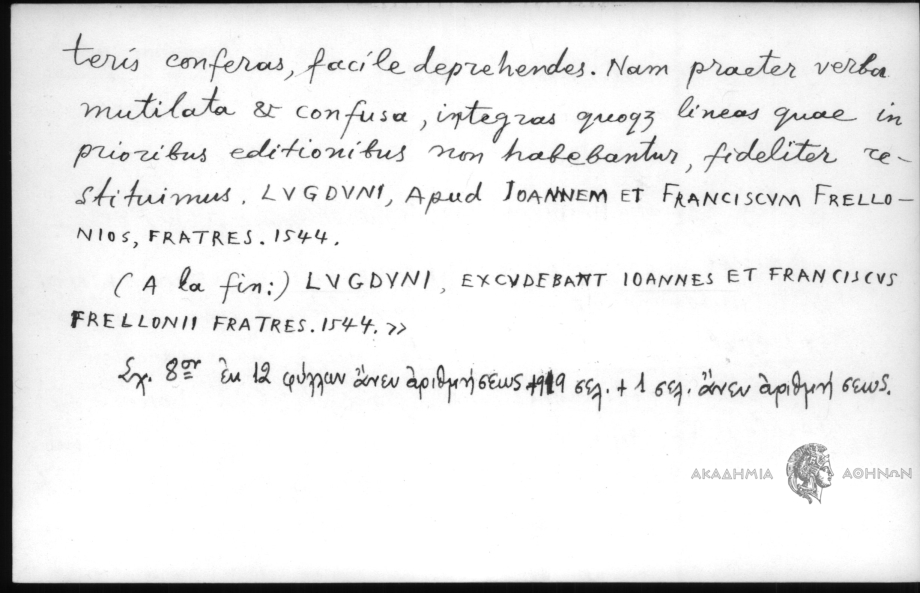 teris conferas, facile deprehendes. Nam praeter verba
mutilata & confusa, integras quoqꝫ lineas quae in
prioribus editionibus non habebantur, fideliter re-
stituimus. LVGDVNI, Apud IOANNEM ET FRANCISCVM FRELLO-
NIOS, FRATRES. 1544.
(A la fin:) LVGDVNI, EXCVDEBANT IOANNES ET FRANCISCVS
FRELLONII FRATRES. 1544.»
Σχ. 8ον ἐκ 12 φύλλων ἄνευ ἀριθμήσεως + 919 σελ. + 1 σελ. ἄνευ ἀριθμήσεως.
ΑΚΑΔΗΜΙΑ ΑΘΗΝΩΝ